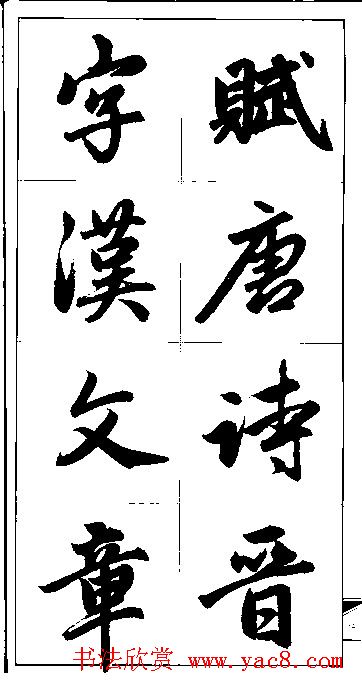 賦唐詩晉
字漢文章
书法欣赏 www.yac8.com